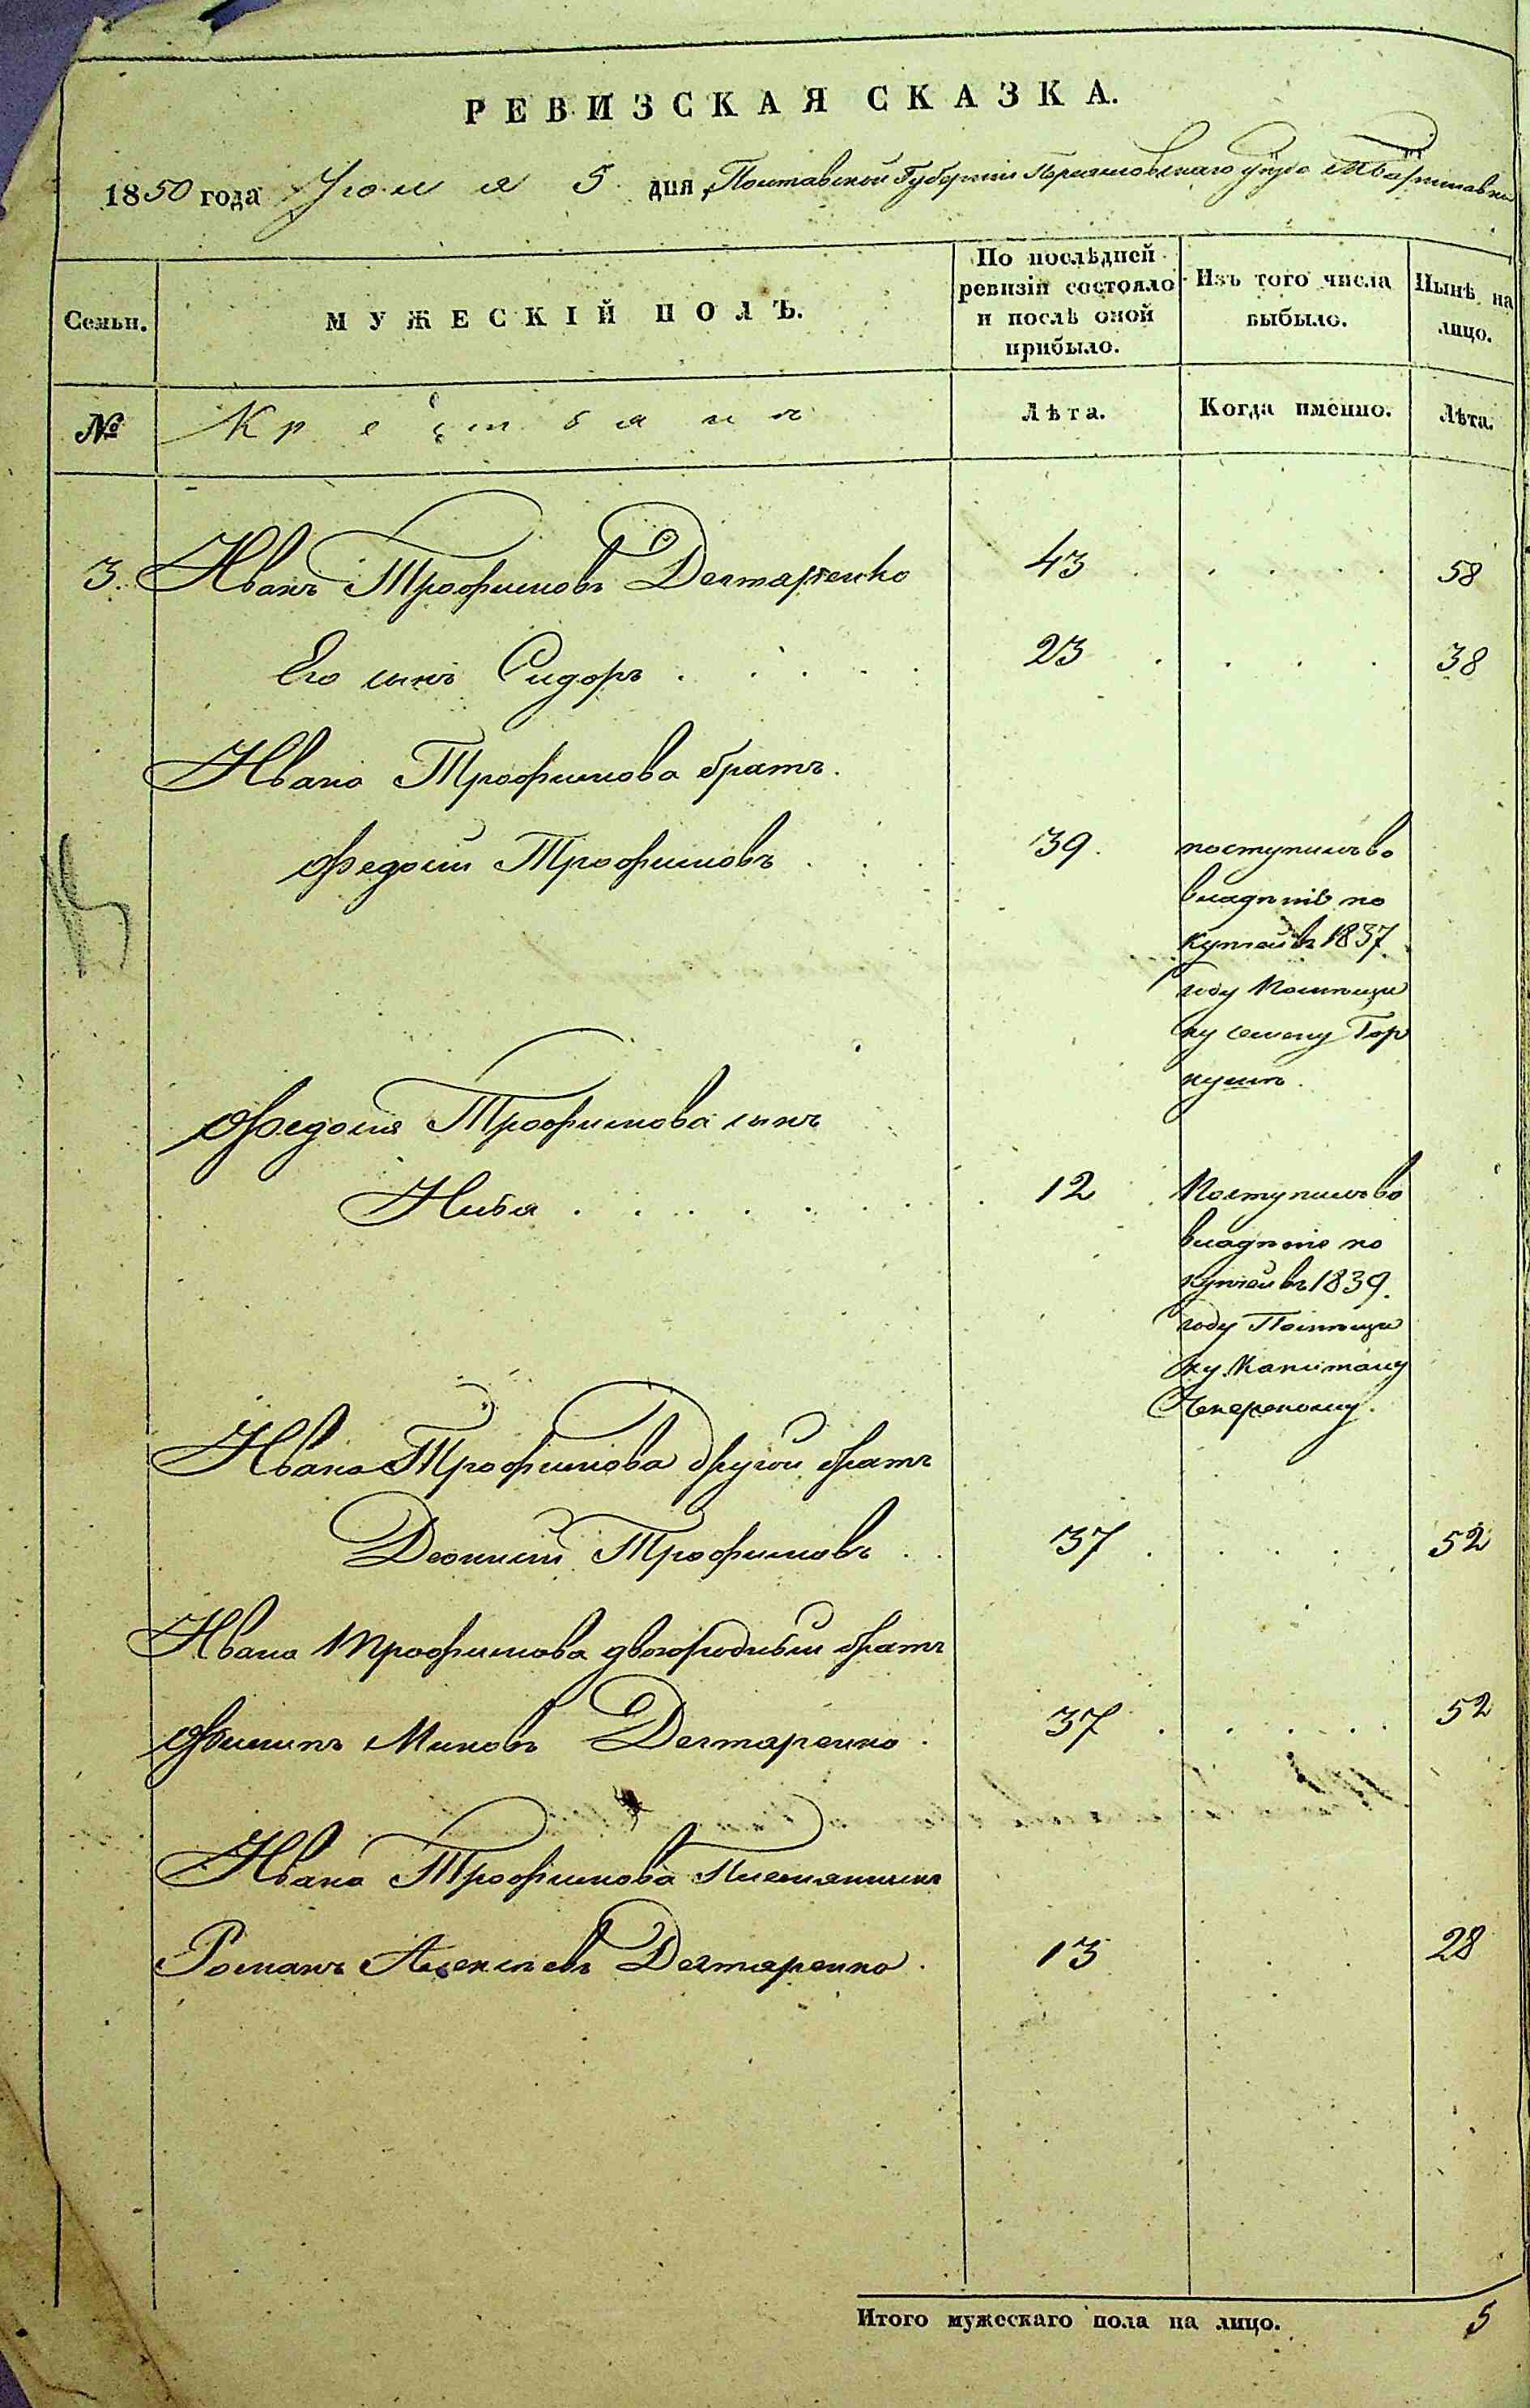 РЕВИЗСКАЯ СКАЗКА.
1850 года Июля 5 дня, Полтавской Губерніи
Семьи.
МУЖЕСКІЙ ПОЛЪ.
По послѣдней ревизіи состояло и послѣ оной прибыло.
Изъ того числа выбыло.
Нынѣ на лицо.
№
Крестьянъ
Лѣта.
Когда именно.
Лѣта.
3. Иванъ Трофимовъ Дегтаренко 43 58
Его сынъ Сидоръ 23 38
Ивана Трофимова братъ.
Федотій Трофимовъ 39. поступилъ во
владѣніе по
купчей въ 1837
году Помѣщи
ку Семену
Трофимова сынъ
12 Поступилъ во
владѣніе по
купчей въ 1839.
году Помѣщи
ку Капитану
Ивана Трофимова другой братъ
Трофимовъ 37 52
Ивана Трофимова двоюродный братъ
Филипъ Дегтаренко. 37 52
Ивана Трофимова Племянникъ
Романъ Алексѣевъ Дегтаренко. 13 28
Итого мужескаго пола на лицо. 5